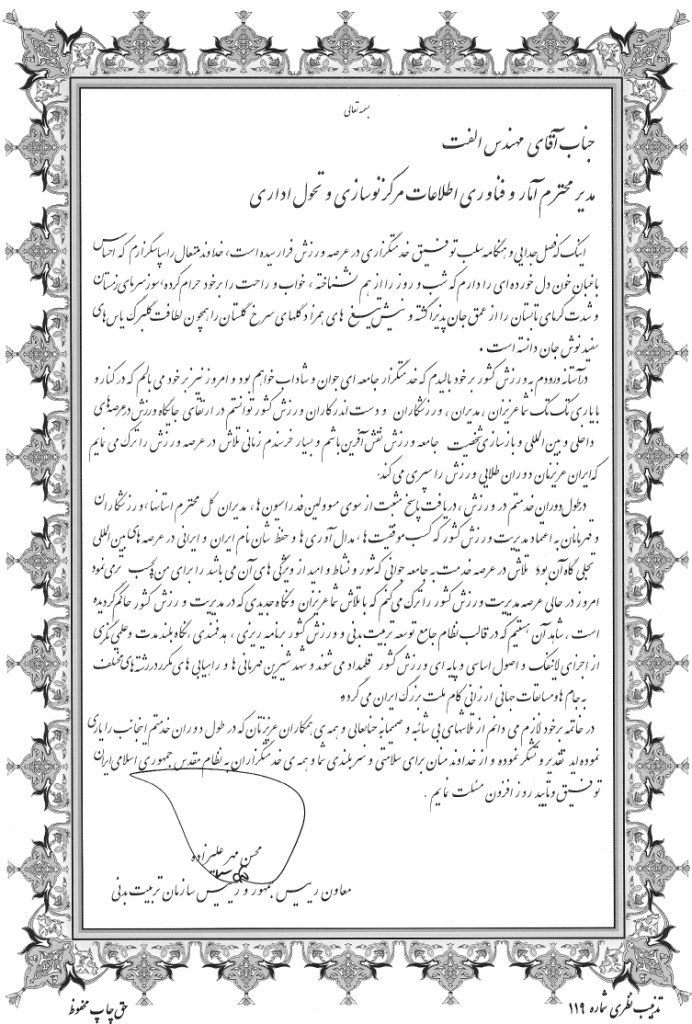 بسمه تعالی
جناب آقای مهندس الفت
مدیر محترم آمار و فناوری اطلاعات مرکز نوسازی و تحول اداری
اینک که فصل جدایی و هنگامه سلب توفیق خدمتگزاری در عرصه ورزش فرا رسیده است، خداوند متعال را سپاسگزارم که احساس
باغبان خون دل خورده ای را دارم که شب و روز را از هم نشناخته ، خواب و راحت را برخود حرام کرده، سوز سرمای زمستان
و شدت گرمای تابستان را از عمق جان پذیرا گشته و نیش تیغ های همراه گلهای سرخ گلستان را همچون لطافت گلبرگ یاس های
سفید نوش جان دانسته است .
در آستانه ورودم به ورزش کشور بر خود بالیدم که خدمتگزار جامعه ای جوان و شاداب خواهم بود و امروز نیز بر خود می بالم که در کنار و
با یاری تک تک شما عزیزان ، مدیران ، ورزشکاران و دست اندرکاران ورزش کشور توانستم در ارتقای جایگاه ورزش در عرصه های
داخلی و بین المللی و بازسازی شخصیت جامعه ورزش نقش آفرین باشم و بسیار خرسندم زمانی تلاش در عرصه ورزش را ترک می نمایم
که ایران عزیزمان دوران طلایی ورزش را سپری می کند.
در طول دوران خدمتم در ورزش ، دریافت پاسخ مثبت از سوی مسوولین فدراسیون ها ، مدیران کل محترم استانها، ورزشکاران
و قهرمانان به اعتماد مدیریت ورزش کشور که کسب موفقیت ها ، مدال آوری ها و حفظ شان نام ایران و ایرانی در عرصه های بین المللی
تجلی گاه آن بود تلاش در عرصه خدمت به جامعه جوانی که شور و نشاط و امید از ویژگی های آن می باشد را برای من دلچسب تر می نمود
امروز در حالی عرصه مدیریت ورزش کشور را ترک می کنم که با تلاش شما عزیزان و نگاه جدیدی که در مدیریت ورزش کشور حاکم گردیده
است ، شاهد آن هستیم که در قالب نظام جامع توسعه تربیت بدنی و ورزش کشور برنامه ریزی ، هدفمندی ، نگاه بلند مدت و علمی نگری
از اجزای لاینفک و اصول اساسی و پایه ای ورزش کشور قلمداد می شوند و شهد شیرین قهرمانی ها و راهیابی های مکرر در رشته های مختلف
به جام ها و مسابقات جهانی ارزانی کام ملت بزرگ ایران می گردد.
در خاتمه بر خود لازم می دانم از تلاشهای بی شائبه و صمیمانه جنابعالی و همه ی همکاران عزیزتان که در طول دوران خدمتم اینجانب را یاری
نموده اید تقدیر و تشکر نموده و از خداوند منان برای سلامتی و سربلندی شما و همه ی خدمتگزاران به نظام مقدس جمهوری اسلامی ایران
توفیق و تایید روز افزون مسئلت نمایم .
محسن مهر علیزاده
معاون رییس جمهور و رییس سازمان تربیت بدنی
تذهیب نظری شماره ۱۱۹
حق چاپ محفوظ